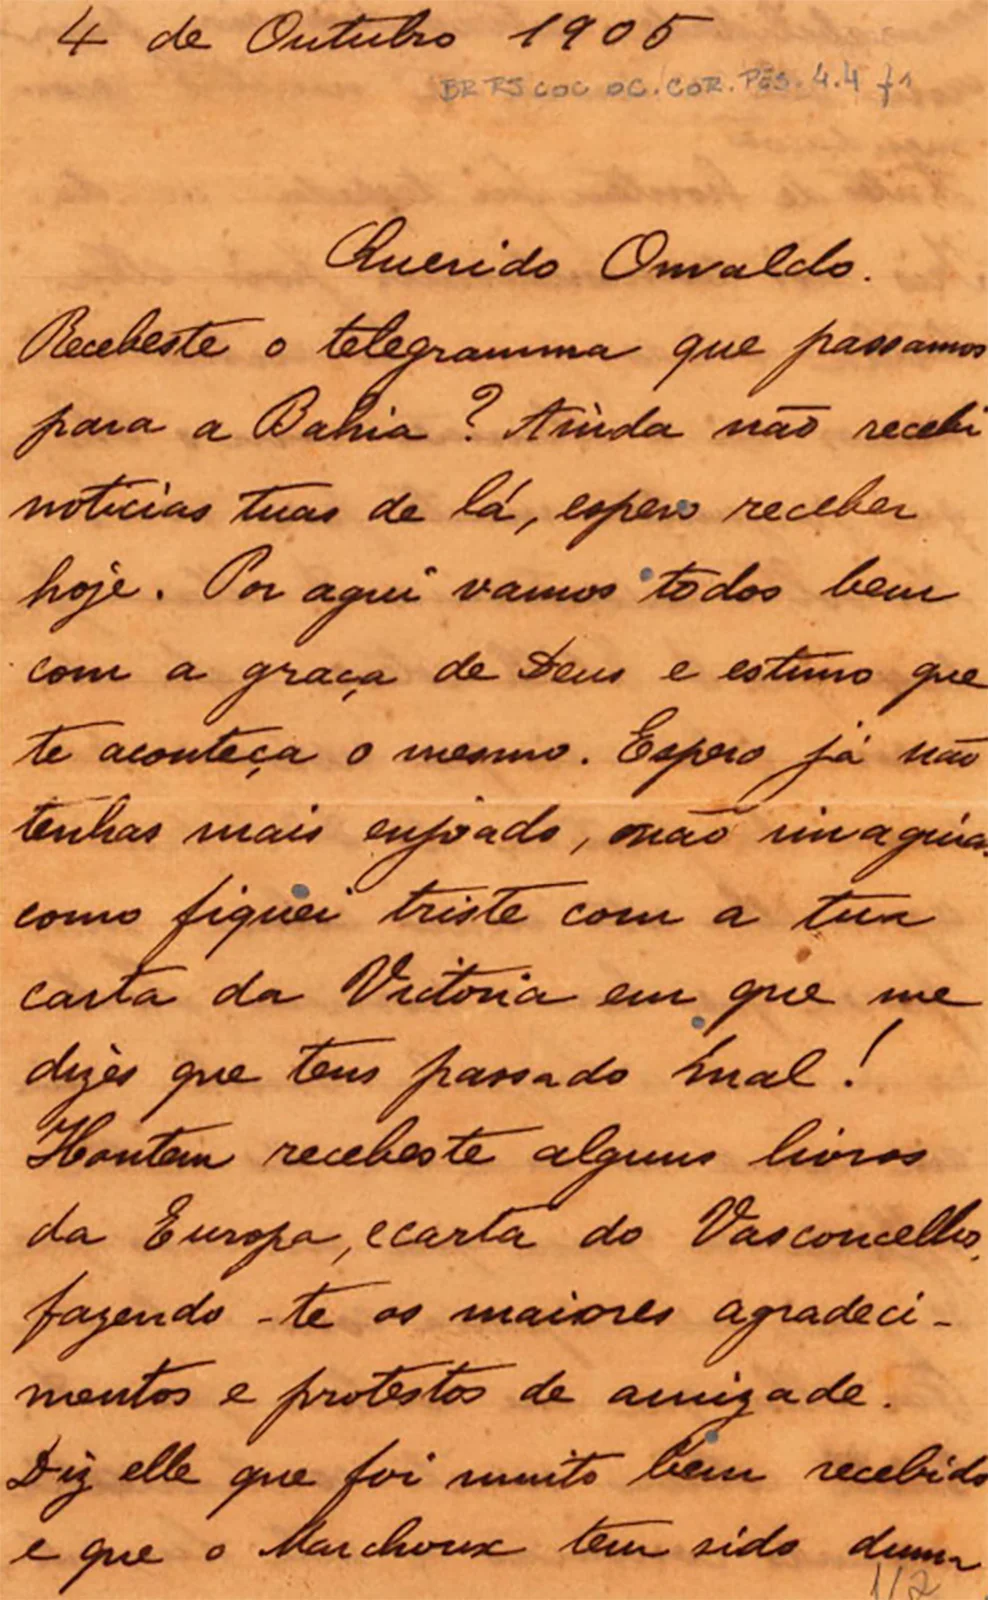 4 de Outubro 1905
BR RJ COC OC.COR.PES.4.4 f1
Querido Oswaldo.
Recebeste o telegramma que passamos
para a Bahia? Ainda não recebi
noticias tuas de lá, espero receber
hoje. Por aqui vamos todos bem
com a graça de Deus e estimo que
te aconteça o mesmo. Espero já não
tenhas mais enjoado, não imaginas
como fiquei triste com a tua
carta da Victoria em que me
dizes que tens passado mal!
Hontem recebeste alguns livros
da Europa, e carta do Vasconcellos,
fazendo-te os maiores agradeci-
mentos e protestos de amizade.
Diz elle que foi muito bem recebido
e que o Marchoux tem sido duma
1/2